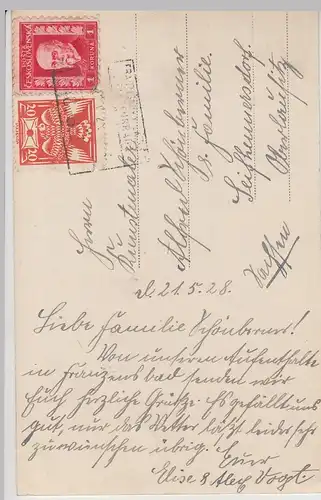 ČESKOSLOVENSKÁ
1 KORUNA 1
20 20
Herrn
Kunstmaler
Alfred Schönberner
u. Familie.
Seifhennersdorf
Oberlausitz
Sachsen
d. 21.5.28.
Liebe Familie Schönberner!
Von unseren Aufenthalte
in Franzensbad senden wir
Euch herzliche Grüße. Es gefällt uns
gut, nur das Wetter läßt leider sehr
zu wünschen übrig. Euer
Elise & Alex Vogt.